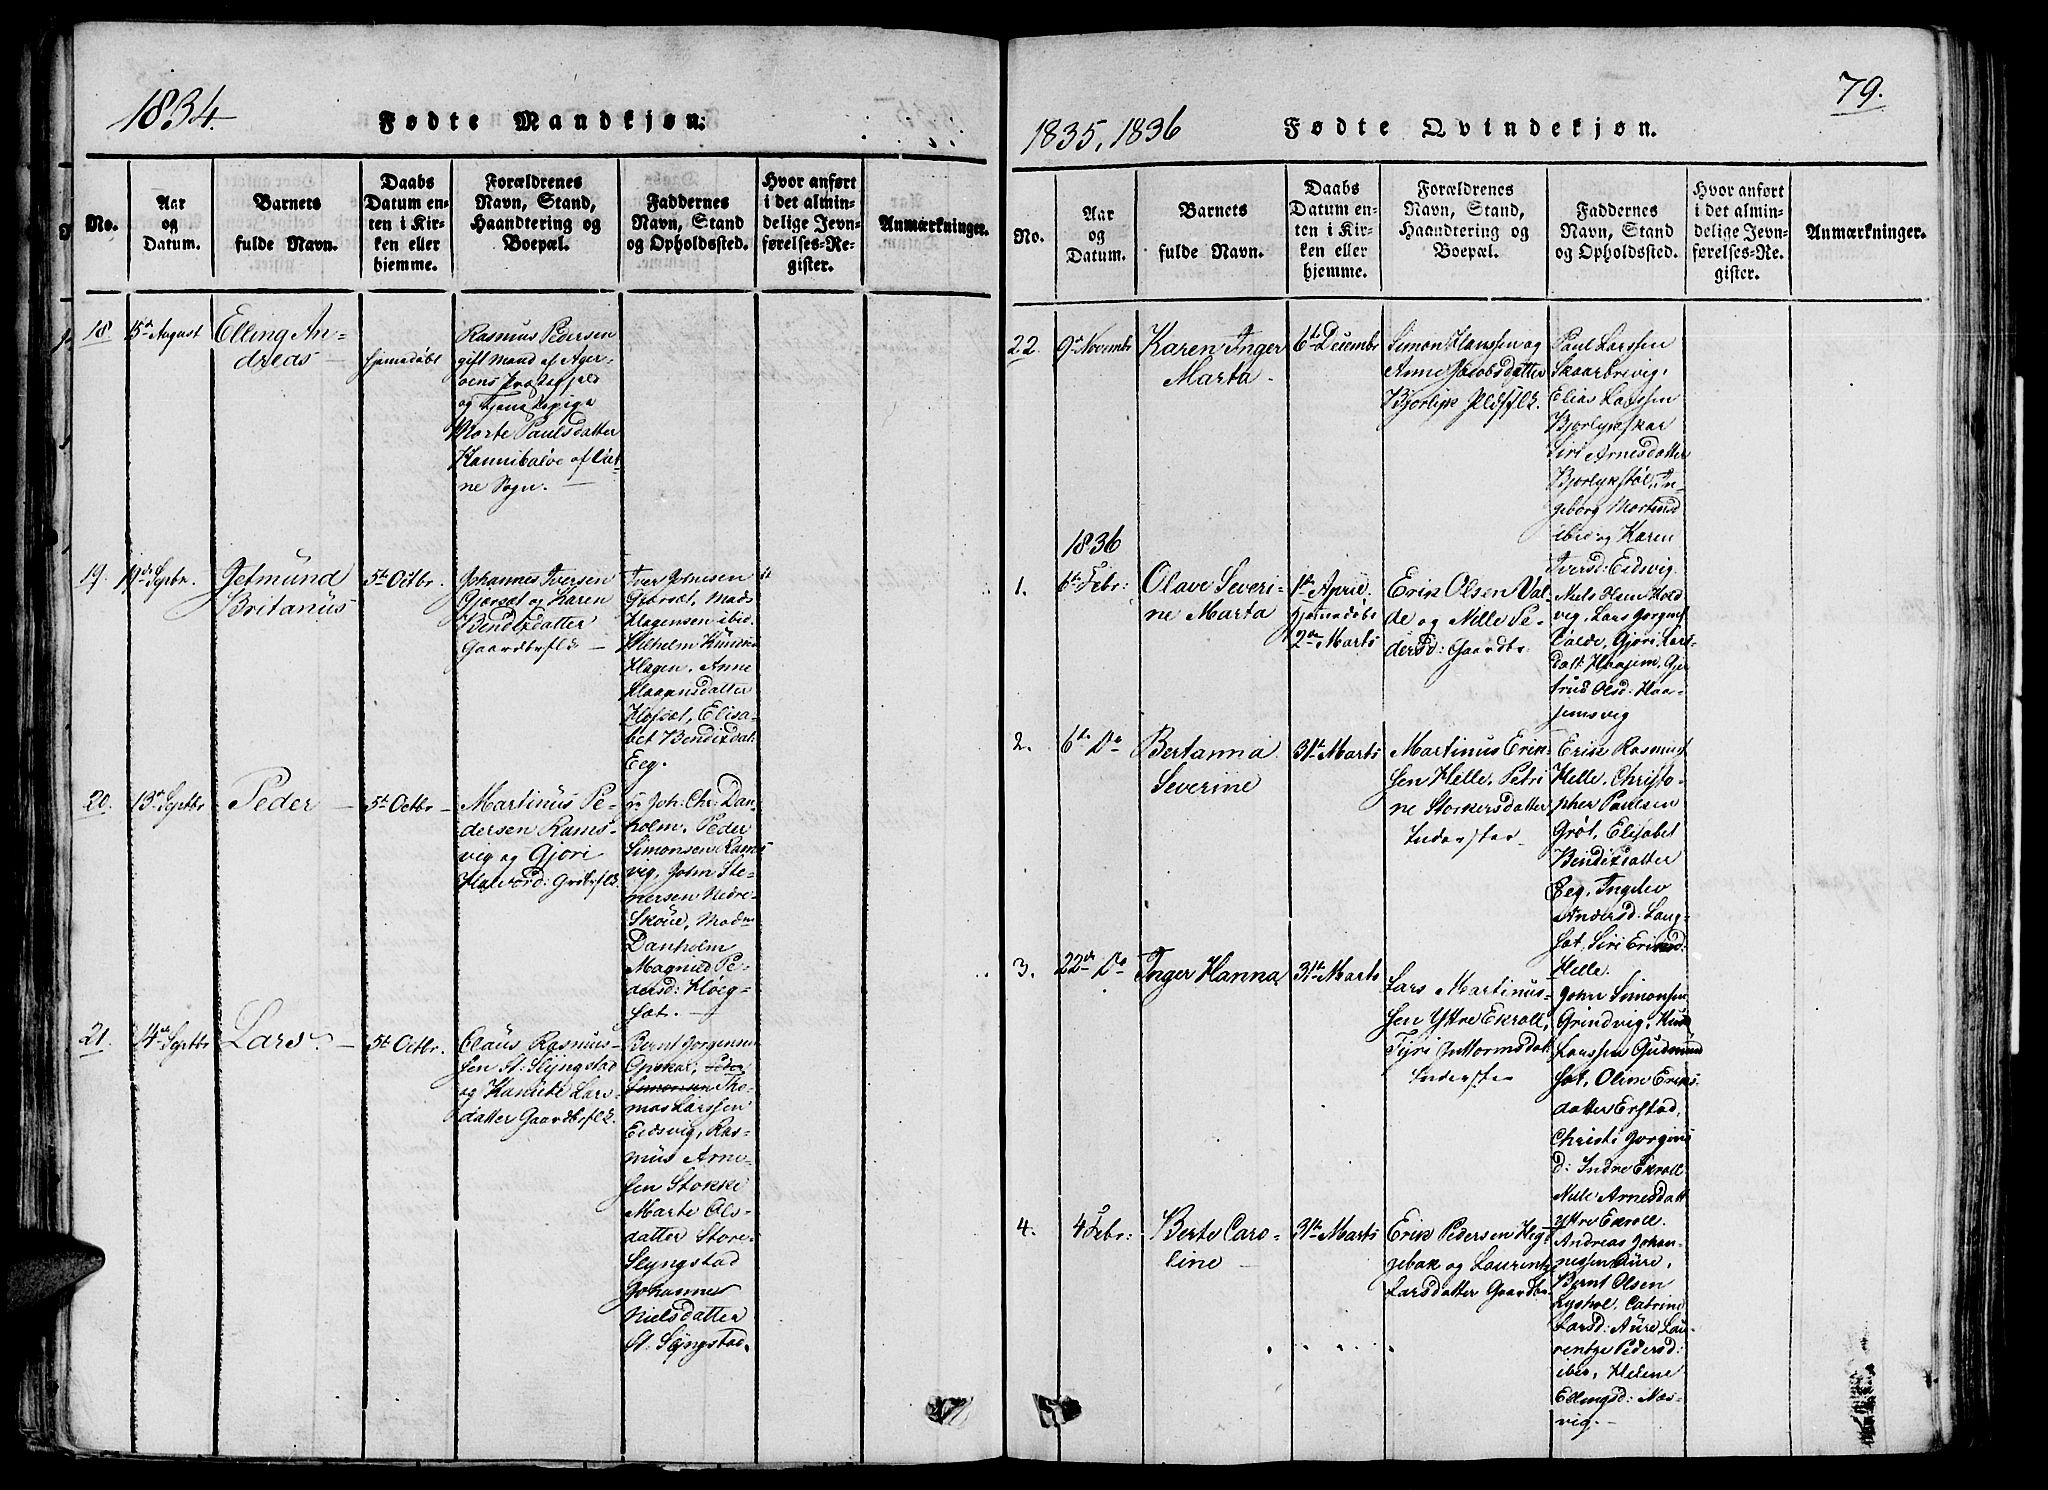 1834.
Fødte Mandkjøn.
No.
Aar
og
Datum.
Barnets
fulde Navn.
Daabs
Datum en-
ten i Kir-
ken eller
hjemme.
Forældrenes
Navn, Stand,
Haandtering og
Boepæl.
Faddernes
Navn, Stand
og Opholdssted.
Hvor anført
i det almin-
delige Jevn-
førelses-Re-
gister.
Anmærkninger.
18
15de August
Elling An-
dreas
hjemedøbt
Rasmus Pedersen
gift mand af Ager-
oens Præstegjeld
og Tjenestepige
Marte Paulsdatter
af
ne Sogn.
19.
19de Septbr.
Jetmund
Britanus
5te Octbr.
Johannes Iversen
Gjærset og Karen
Bendixdatter
Gaardbrflk
Iver Johnsen
Gjærset, Mads
Hagensen ibid.
Wilhelm
Hagen, Anne
Haagensdatter
Hofsæt, Elisa-
bet Bendixdat:
Eeg.
20.
13de Septbr
Peder
5te Octbr
Martinus Pe-
dersen Rams-
vig og Gjøri
Halvord:
Joh: Chr: Dan-
holm, Peder
Simonsen Rams
vig, John Ste-
nersen Nedre-
Skoue, Madm
Danholm
Magnild Pe-
dersd: Høeg-
sæt.
21
14de Septbr
Lars
5te Octbr.
Claus Rasmus-
sen St: Slyngstad
og Lars-
datter Gaardbrflk.
Bernt Jørgensen
Opskal, Peder
Simonsen Tho-
mas Larssen
Eidsvig, Ras-
mus Arne-
sen Stokke
Marte Ols-
datter Store-
Slyngstad
Johanne
Nielsdatter
St: Slyngstad.
79.
1835, 1836
Fødte Qvindekjøn.
No.
Aar
og
Datum.
Barnets
fulde Navn.
Daabs
Datum en-
ten i Kir-
ken eller
hjemme.
Forældrenes
Navn, Stand,
Haandtering og
Boepæl.
Faddernes
Navn, Stand
og Opholdssted.
Hvor anført
i det almin-
delige Jevn-
førelses-Re-
gister.
Anmærkninger.
22
9de Novembr
Karen Inger
Marta
6te Decembr
Simon Hanssen og
Anne Jacobsdatter
Bjørlyk
Paul Larssen
Skaarbrevig,
Elias Larssen
Bjørlykskar
Siri Arnesdatter
Bjørlykstøl, In-
geborg Martinusd
ibid og Karen
Iversd: Eidsvig.
1836
1.
6te Febr:
Olave Severi-
ne Marta
1te April.
hjemedøbt
2den Marts
Erik Olsen Val-
de og Nille Pe-
dersd: Gaardbr
Niels Olsen
vig, Lars Jørgens
Valde, Gjøri Lars-
datt: Haajem, Gjer-
trud Olsd: Haa-
jemsvig
2.
6te Do
Bertanna
Severine
31te Marts
Martinus Erik-
sen Helle, Petri
ne Storkersdatter
Inderster
Erik Rasmus
Helle, Christo-
pher Paulsen
Grøt, Elisabet
Bendixdatter
Eeg, Ingelev
Andersd: Laug-
sæt, Siri Eriksd:
Helle.
3.
22de Do
Inger Hanna
31te Marts
Lars Martinus-
sen Yttre Ekroll,
Guttormsdat
Inderster
John Simonsen
Grindvig, Knud
Larssen Gudmund
sæt, Oline Eriks
datter Erstad,
Christi Jørgens
d: Indre Ekroll
Nille Arnesdatt
Yttre Ekroll.
4.
4 Febr:
Berte Caro-
line
31te Marts
Erik Pedersen
og Laurentze
Larsdatter Gaardbr
Andreas Johan-
nessen Aure,
Bernt Olsen
Lyshol, Catrine
Larsd: Aure Lau-
rentze Pedersd:
ibid, Helene
Ellingsd: Næs-
vig.